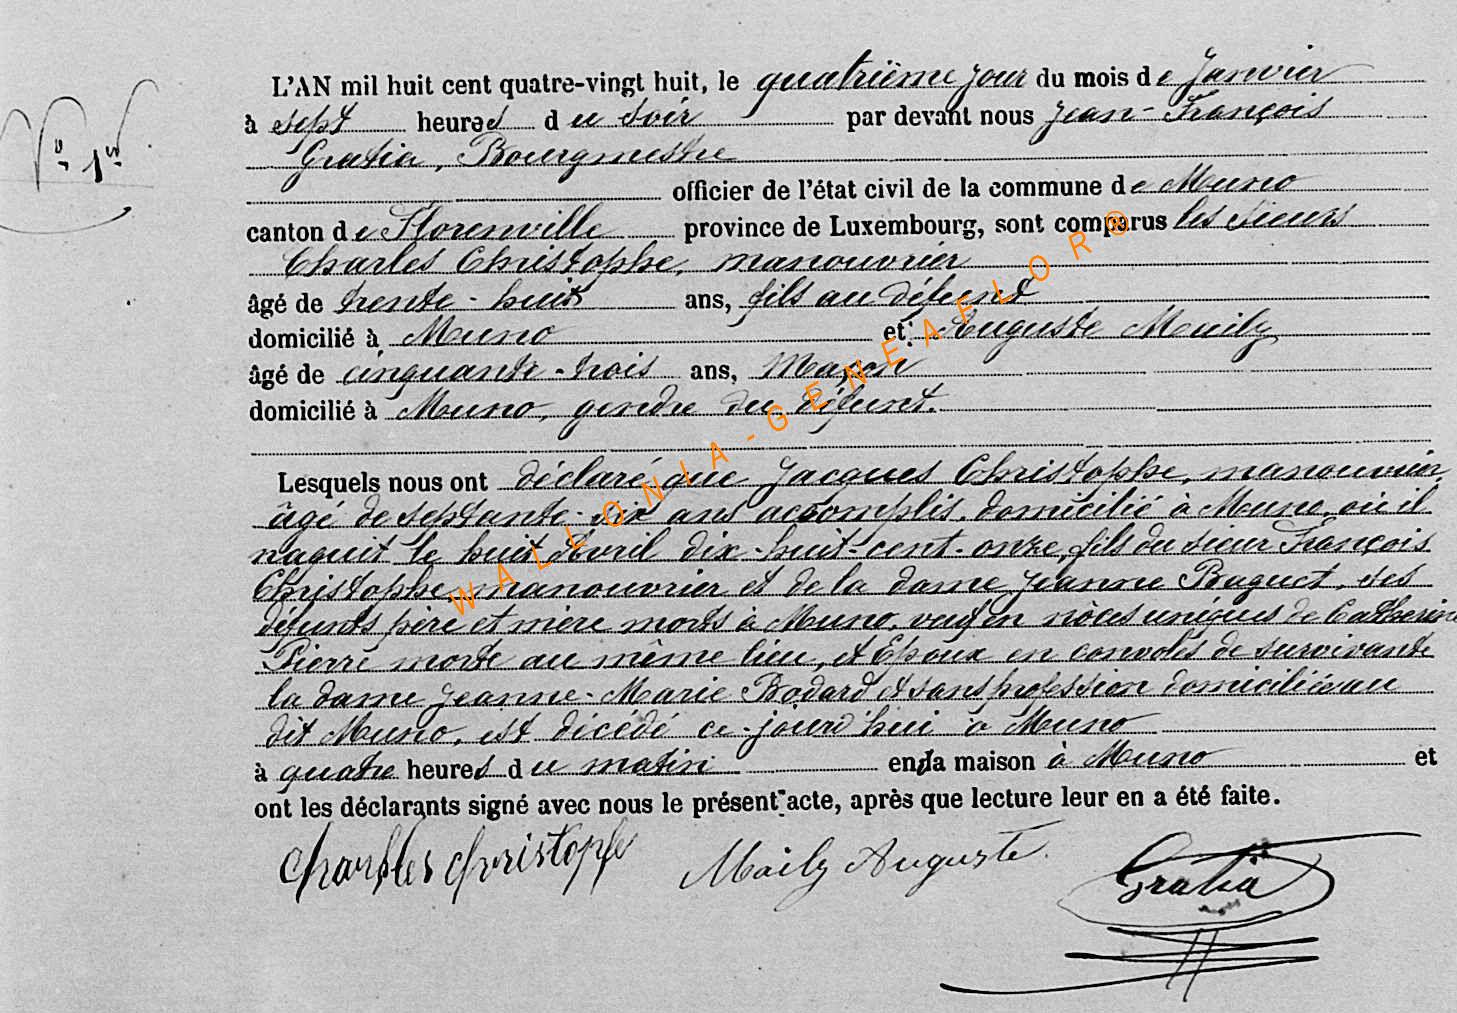 N° 1er
L'AN mil huit cent quatre-vingt huit, le quatrième jour du mois de Janvier
à sept heures du soir par devant nous Jean-François
Gratia, Bourgmestre
officier de l'état civil de la commune de Muno
canton de Florenville province de Luxembourg, sont comparus les sieurs
Charles Christophe, manouvrier
âgé de trente-huit ans, fils au défunt
domicilié à Muno et Auguste Maily
âgé de cinquante-trois ans, Maçon
domicilié à Muno, gendre du défunt.
Lesquels nous ont déclaré que Jacques Christophe, manouvrier
âgé de septante-six ans accomplis, domicilié à Muno, où il
naquit le huit Avril dix-huit-cent-onze, fils du sieur François
Christophe manouvrier et de la dame Jeanne Buguet, ses
défunts père et mère morts à Muno, veuf en nôces uniques de Catherine
Pierre morte au même lieu, et Epoux en convolés de survivante
la dame Jeanne-Marie Bodard et sans profession domiciliée au
dit Muno, est décédé ce-jourd'hui à Muno
à quatre heures du matin en la maison à Muno et
ont les déclarants signé avec nous le présent acte, après que lecture leur en a été faite.
Charles Christophe Maily Auguste Gratia
WALLONIA-GENEAFLOR®